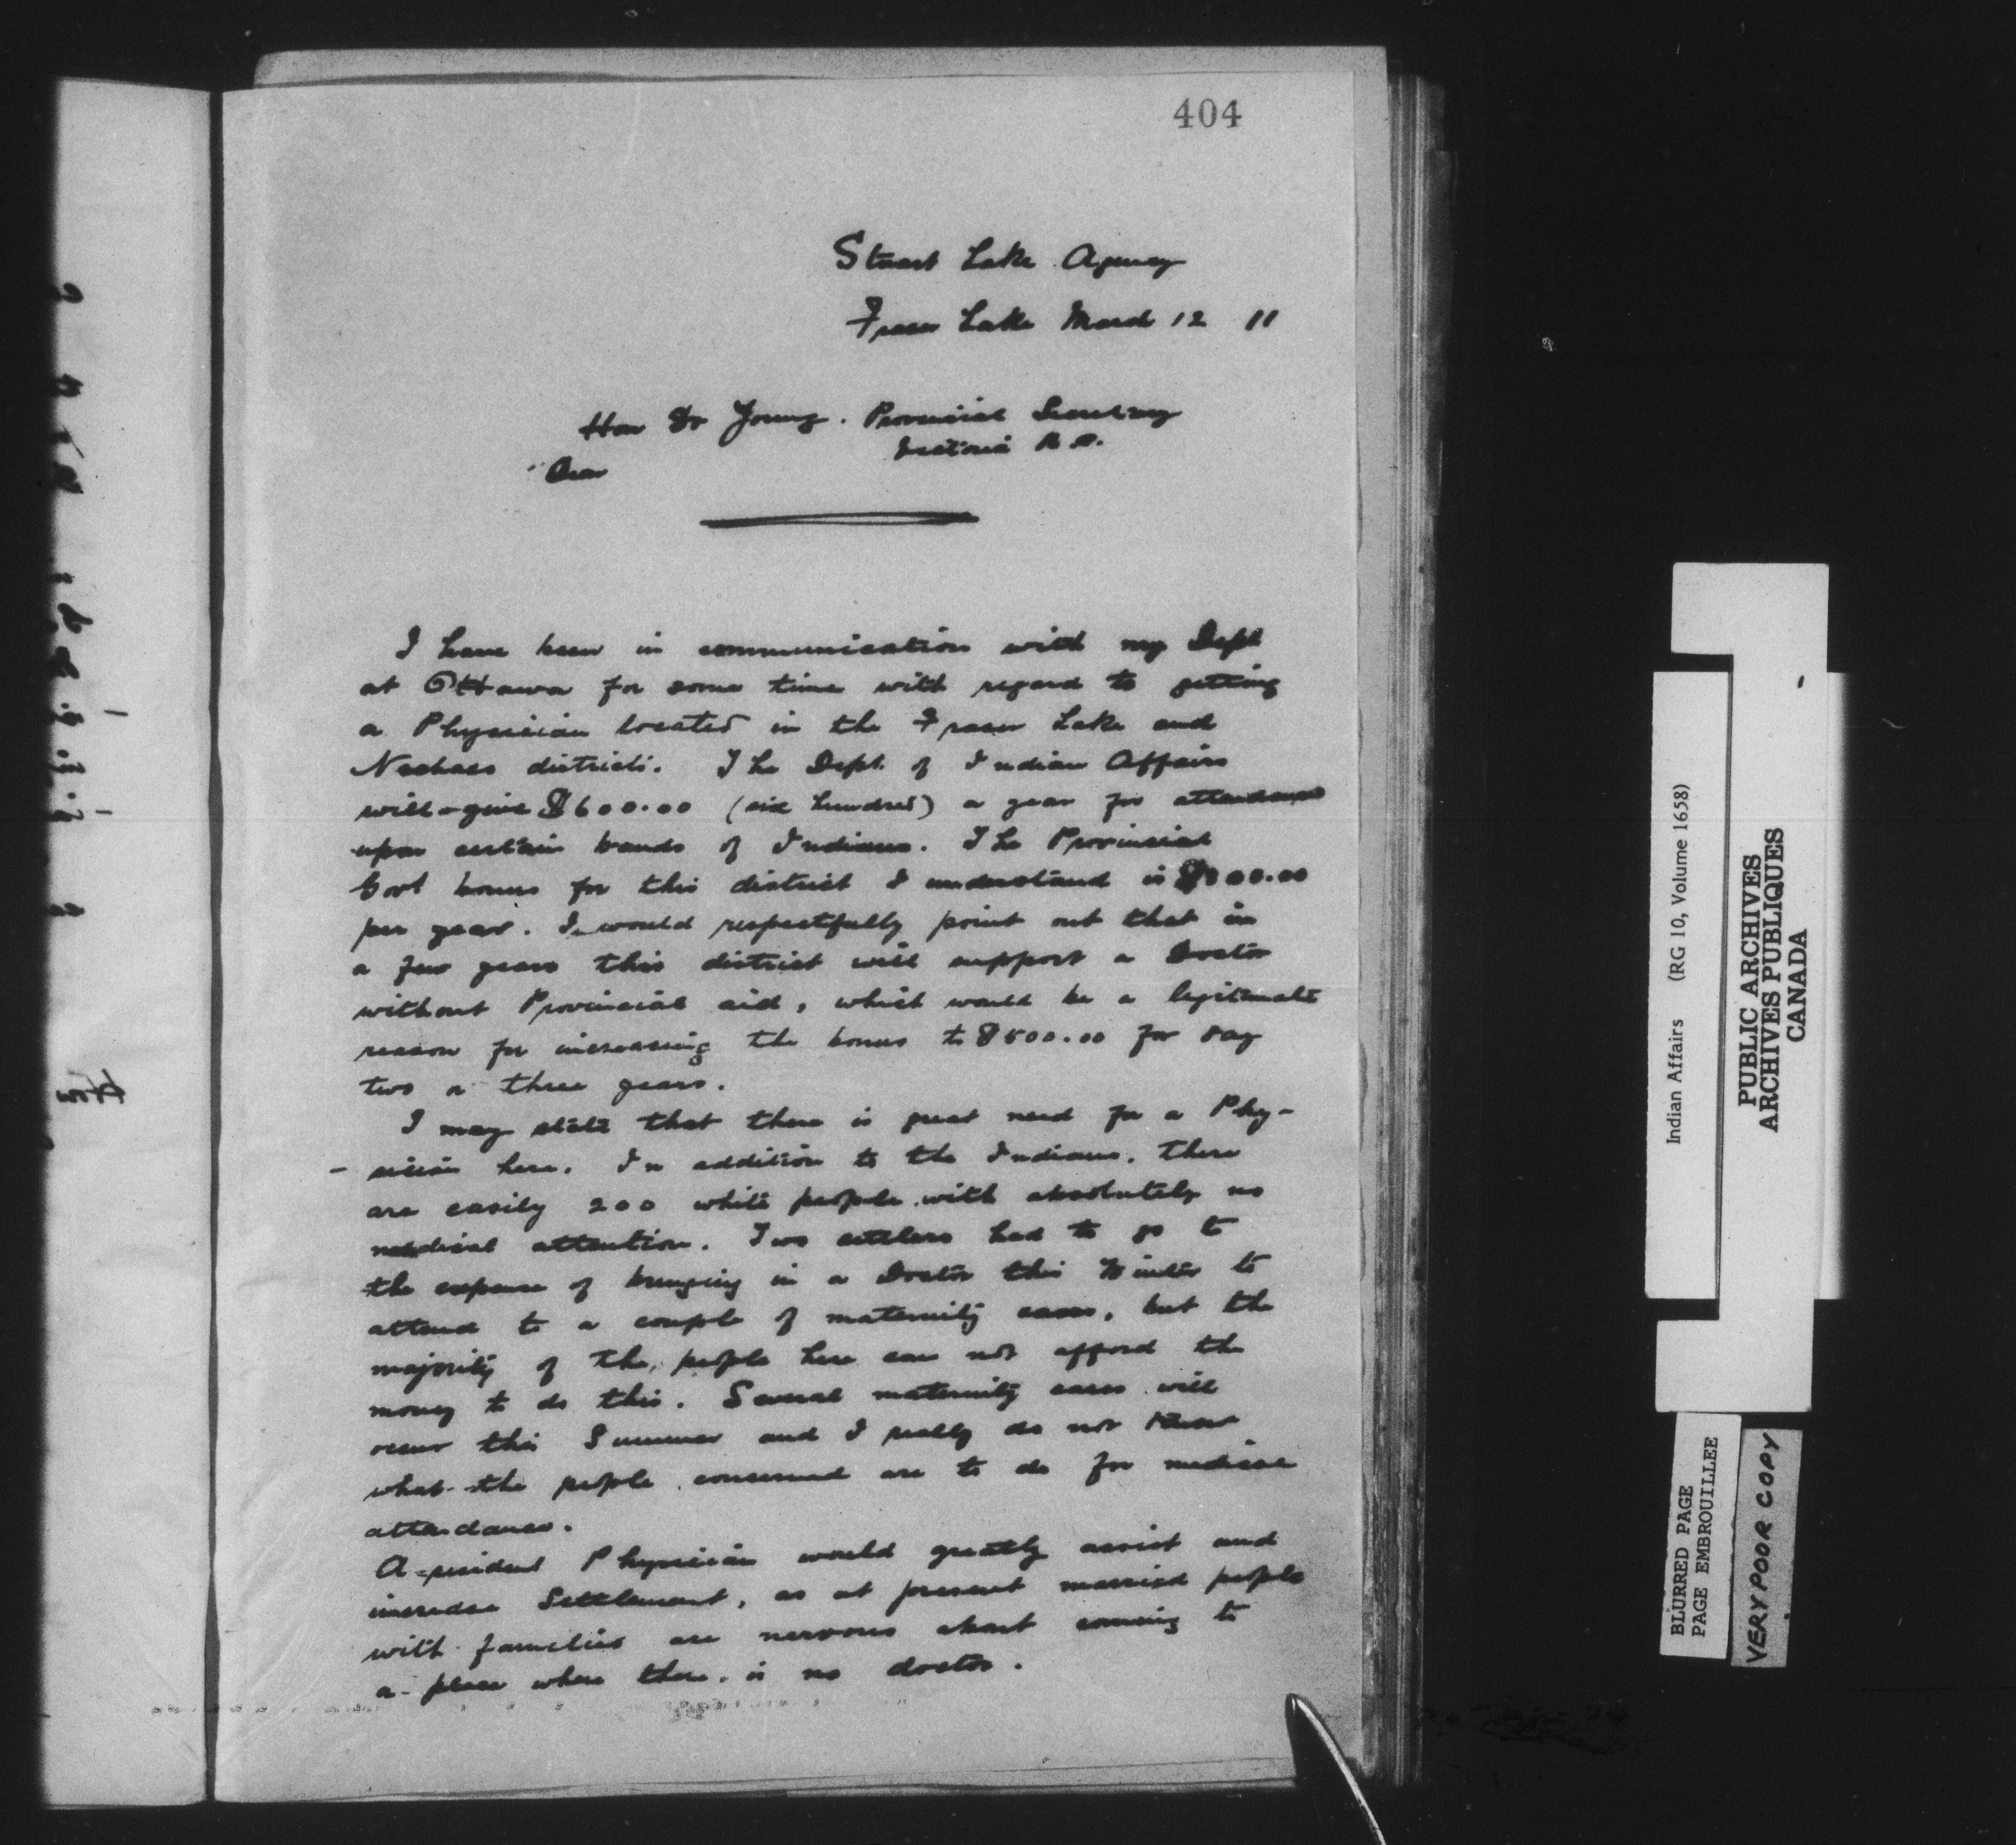 404
Stuart Lake Agency
Fraser Lake March 12 11
Hon Dr Young. Provincial Secretary
Victoria B.C.
Dear
I have been in communication with my Dept
at Ottawa for some time with regard to getting
a Physician located in the Fraser Lake and
Nechaco districts. The Dept. of Indian Affairs
will give $600.00 (six hundred) a year for attendance
upon certain bands of Indians. The Provincial
Govt bonus for this district I understand is
per year. I would respectfully point out that in
a few years this district will support a Doctor
without Provincial aid, which would be a legitimate
reason for increasing the bonus to $500.00 for say
two or three years.
I may state that there is great need for a Phy-
- sician here. In addition to the Indians, there
are easily 200 white people with absolutely no
medical attention. Two settlers had to go to
the expense of bringing in a Doctor this Winter to
attend to a couple of maternity cases, but the
majority of the people here can not afford the
money to do this. Several maternity cases will
occur this Summer and I really do not know
what the people concerned are to do for medical
attendance.
A resident Physician would greatly assist and
increase Settlement, as at present married people
with families are nervous about coming to
a place where there is no doctor.
Indian Affairs (RG 10, Volume 1658)
PUBLIC ARCHIVES
ARCHIVES PUBLIQUES
CANADA
BLURRED PAGE
PAGE EMBROUILLEE
VERY POOR COPY